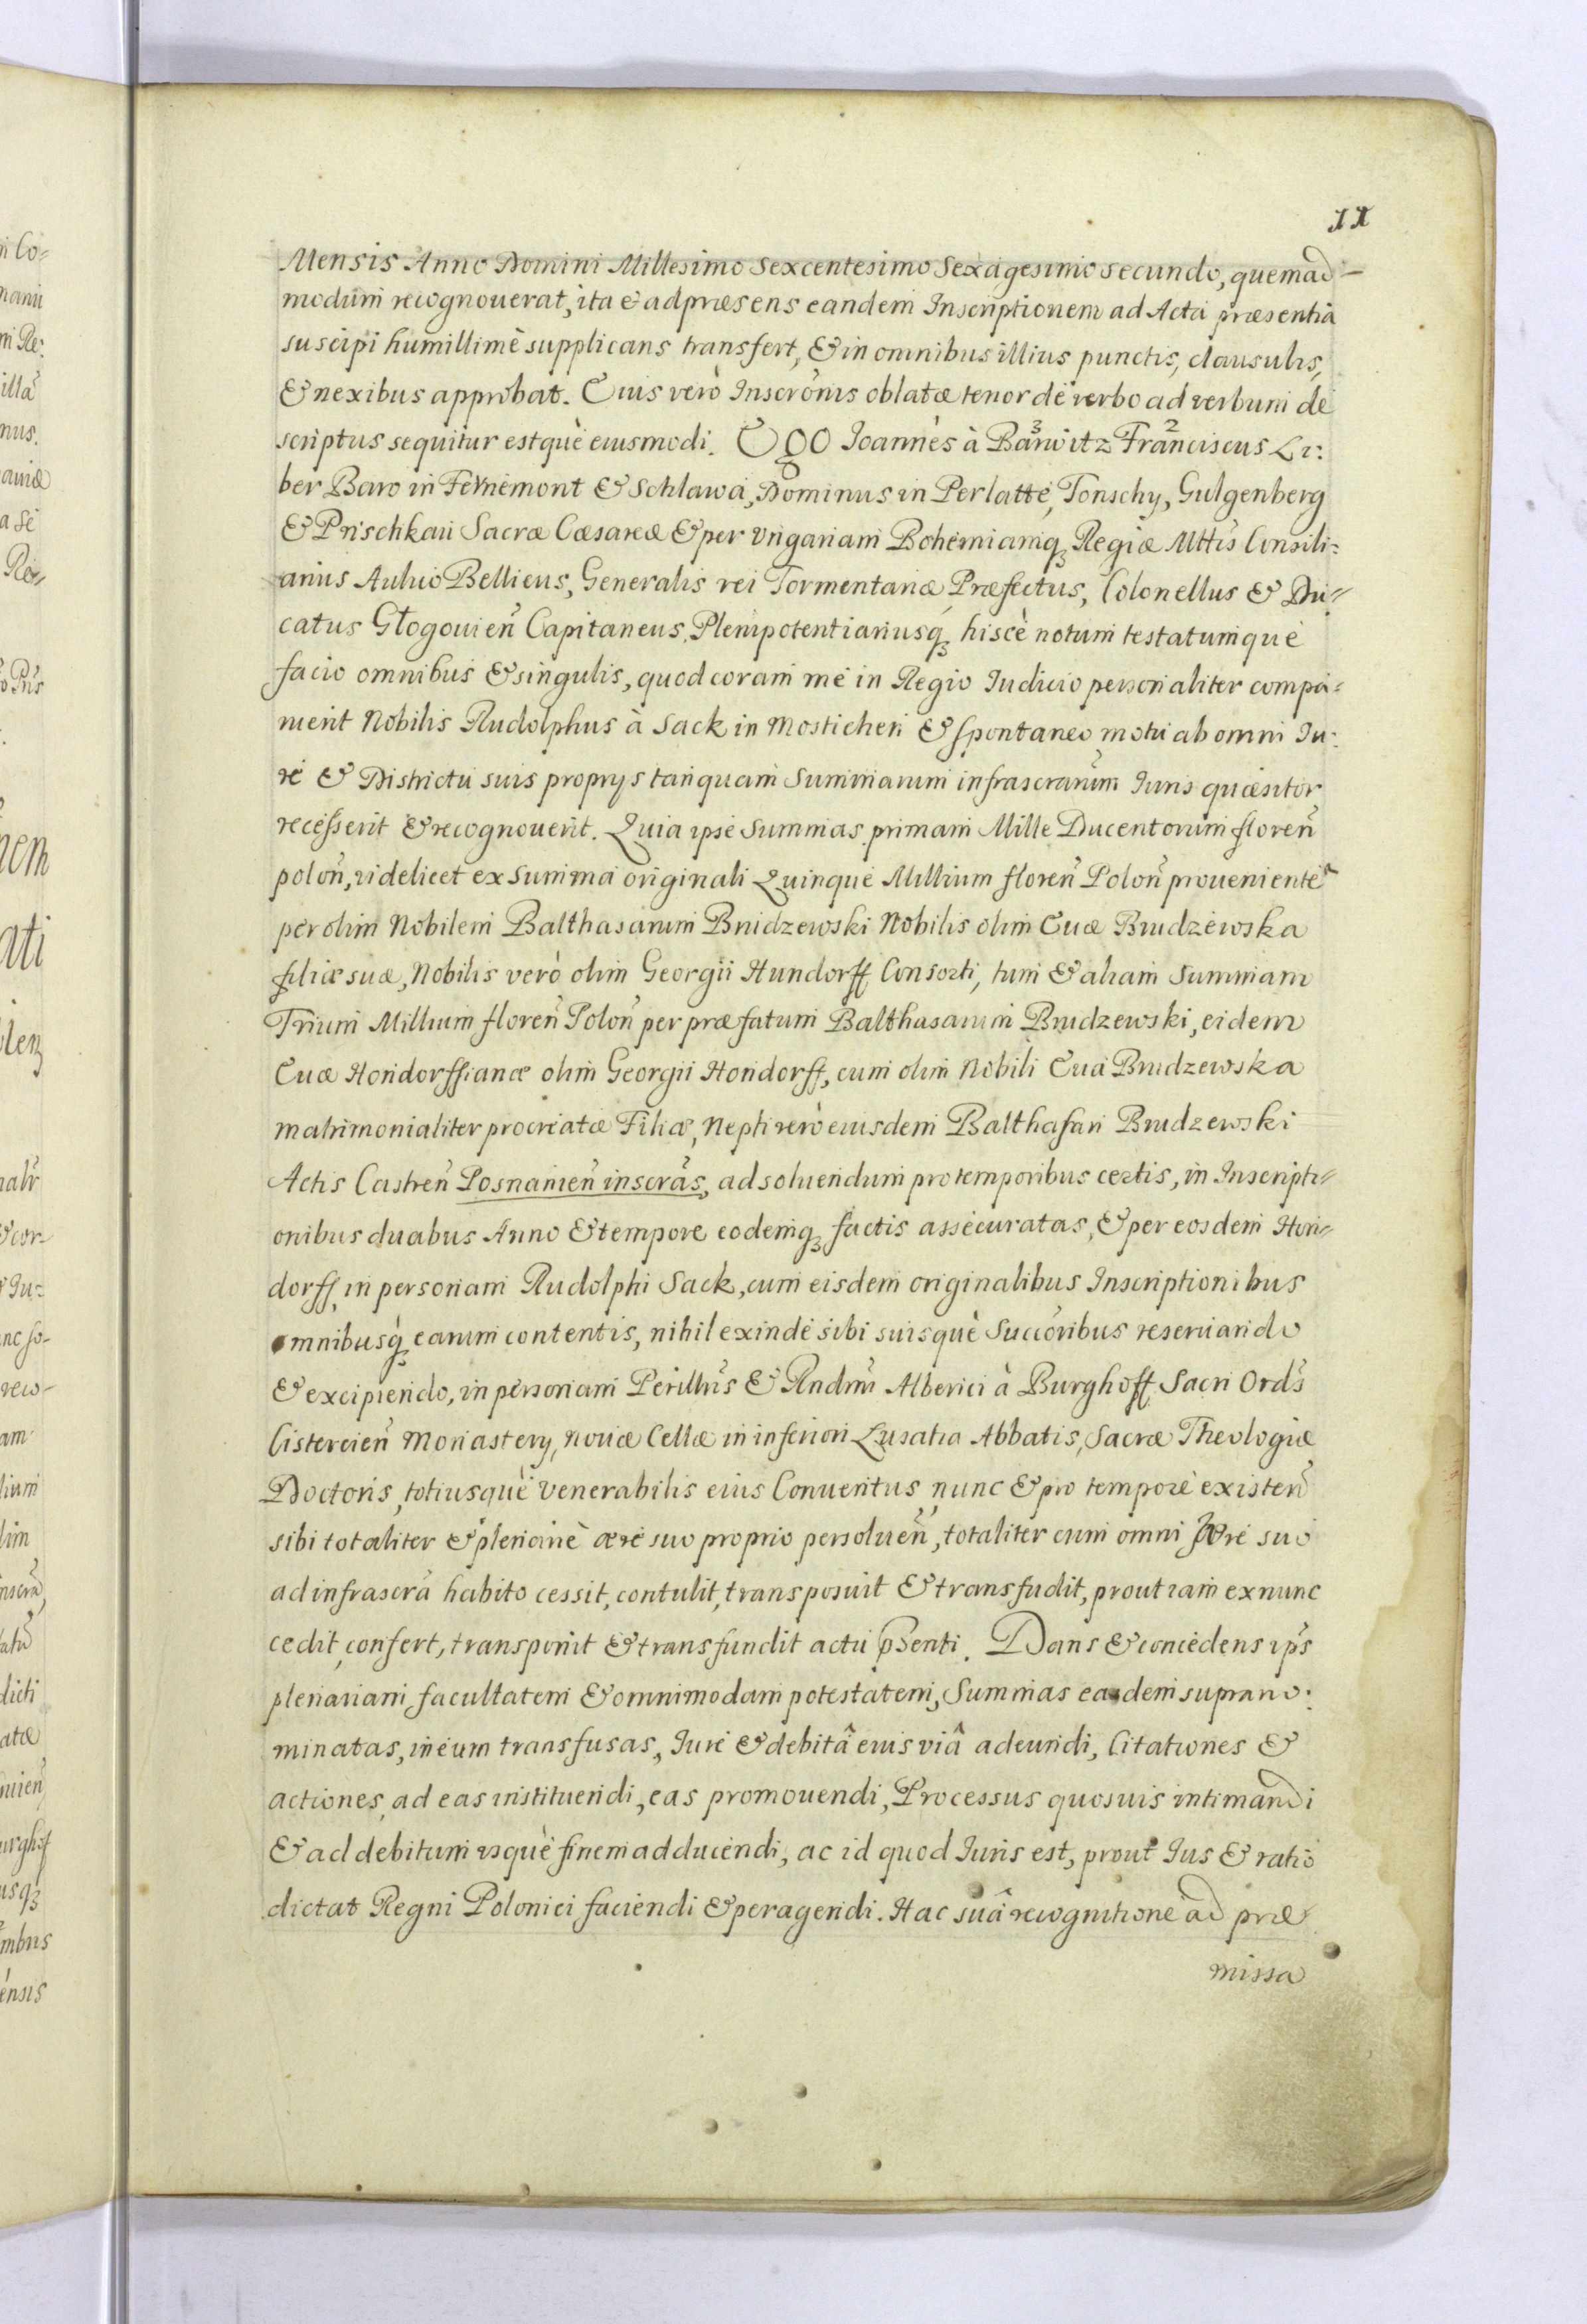 11
Mensis Anno Domini Millesimo Sexcentesimo Sexagesimo secundo, quemad-
modum recognouerat, ita & ad præsens eandem Inscriptionem ad Acta præsentia
suscipi humillimè supplicans transfert, & in omnibus illius punctis, clausulis,
& nexibus approbat. Cuius verò Inscrõnis oblatæ tenor de verbo ad verbum de
scriptus sequitur estquè eiusmodi. EGO Joannes à Barwitz³ Franciscus² Li:
ber Baro in Fernemont & Schlawa, Dominus in Perlatte, Tonschy, Gulgenberg
& Prischkau Sacræ Cæsareæ & per Vngariam Bohemiamq; Regiæ Mttis Consili=
arius Aulico Bellicus, Generalis rei Tormentariæ Præfectus, Colonellus & Du=
catus Glogouień Capitaneus, Plenipotentiariusq; hiscè notum testatumquè
facio omnibus & singulis, quod coram me in Regio Iudicio personaliter compa=
ruerit Nobilis Rudolphus à Sack in Mosticheri & spontaneo motu ab omni Iu:
re & Districtu suis proprys tanquam Summarum infrascrarũm Iuris quæsitor
recesserit & recognouerit. Quia ipse Summas primam Mille Ducentorum floreñ
poloñ, videlicet ex Summa originali Quinque Millium floreñ Poloñ proueniente
per olim Nobilem Balthasarum Brudzewski Nobilis olim Euæ Brudzewska
filiæ suæ, Nobilis verò olim Georgii Hundorff Consorti, tum & aliam Summam
Trium Millium floreñ Poloñ per præfatum Balthasarum Brudzewski, eidem
Euæ Hondorffianæ olim Georgii Hondorff, cum olim Nobili Eua Brudzewska
matrimonialiter procreatæ Filiæ, Nepti verò eiusdem Balthasari Brudzewski
Actis Castreñ Posnanieñ inscrãs, ad soluendum pro temporibus certis, in Inscripti=
onibus duabus Anno & tempore eodemq; factis assecuratas, & per eosdem Hon=
dorff in personam Rudolphi Sack, cum eisdem originalibus Inscriptionibus
omnibusq; earum contentis, nihil exinde sibi suisquè Succõribus reseruando
& excipiendo, in personam Perillũs & Rndmi Alberici à Burghoff Sacri Ords
Cistercień Monastery, Nouæ Cellæ in inferiori Lusatia Abbatis, Sacræ Theologiæ
Doctoris, totiusquè Venerabilis eius Conuentus nunc & pro tempore existeñ
sibi totaliter & plenariè ære suo proprio persolueñ, totaliter cum omni Jure suo
ad infrascrã habito cessit, contulit, transposuit & transfudit, prout iam ex nunc
cedit, confert, transponit & transfundit actu pñsenti. Dans & concedens ips
plenariam facultatem & omnimodam potestatem, Summas easdem suprano:
minatas, in eum transfusas, Iure & debitâ eius viâ adeundi, Citationes &
actiones ad eas instituendi, eas promouendi, Processus quosuis intimandi
& ad debitum usquè finem adducendi, ac id quod Iuris est, prout Ius & ratio
dictat Regni Polonici faciendi & peragendi. Hac suâ recognitione ad præ
missa